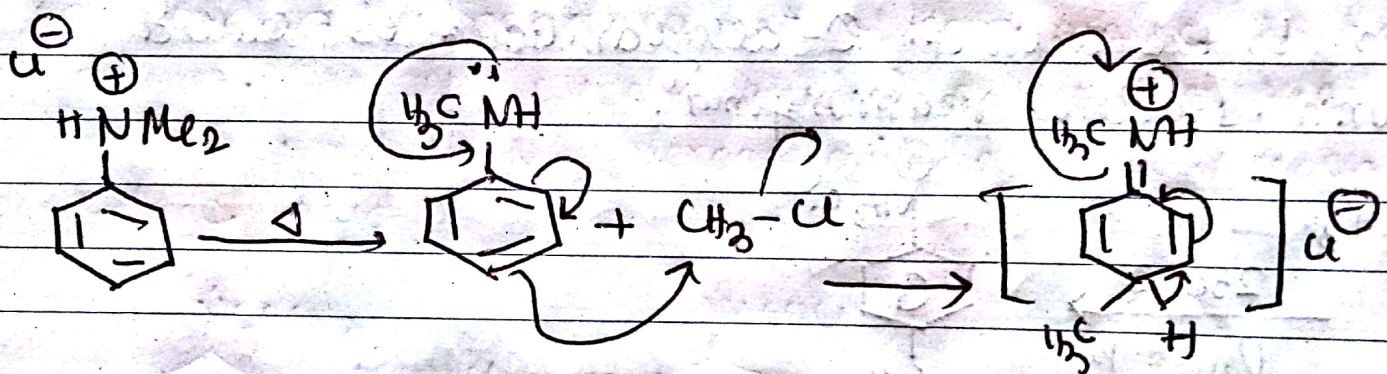 Cl ⊖
⊕
HNMe₂
Δ
H₃C N̈H
+ CH₃–Cl
⊕
H₃C NH
[ ] Cl ⊖
H₃C H